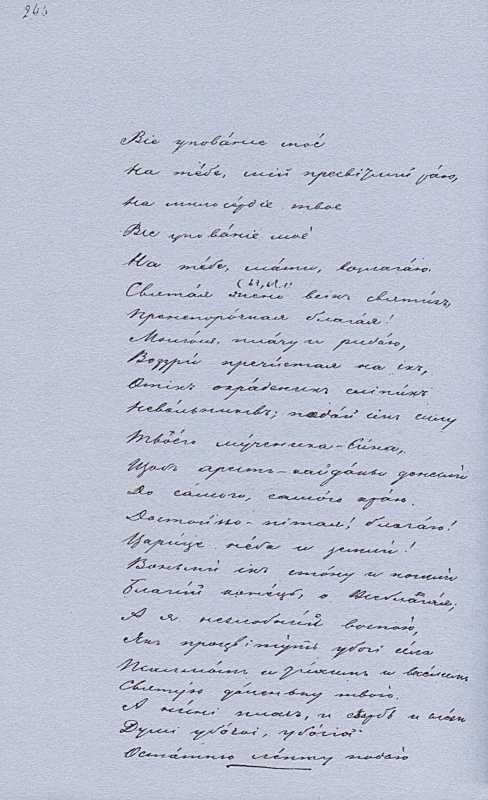 244
Все упова́ніе моє́
На те́бе, мій пресвітлий раю,
На милосе́рдіє твоє
Все упова́ніє моє́
На те́бе, ма́ти, возлага́ю.
Святая си́ло всіхъ святихъ,
Пренепоро́чная благая!
Молюся, пла́чу и рида́ю,
Воззри́ пречи́стая на іхъ,
Отіхъ окра́деникъ сліпихъ
Нево́льниківъ; пода́й імъ силу
Твоє́го му́ченика-Си́на,
Щобъ хрестъ-кайда́ни донести
До самого, самого краю.
Достойно-пі́тая! благаю!
Цари́це не́ба и землі́!
Воньми́ іхъ сто́ну и пошли
Благи́й коне́ць, о Всеблага́я;
А я незлобний воспою,
Якъ процвіту́ть убогі се́ла
Псалмомъ и ти́химъ и весе́лимъ
Святу́ю до́леньку твою.
А ни́ні плачъ, и скорбь и сльози
Душі́ убо́гої, убо́гій
Оста́тнюю ле́пту подаю